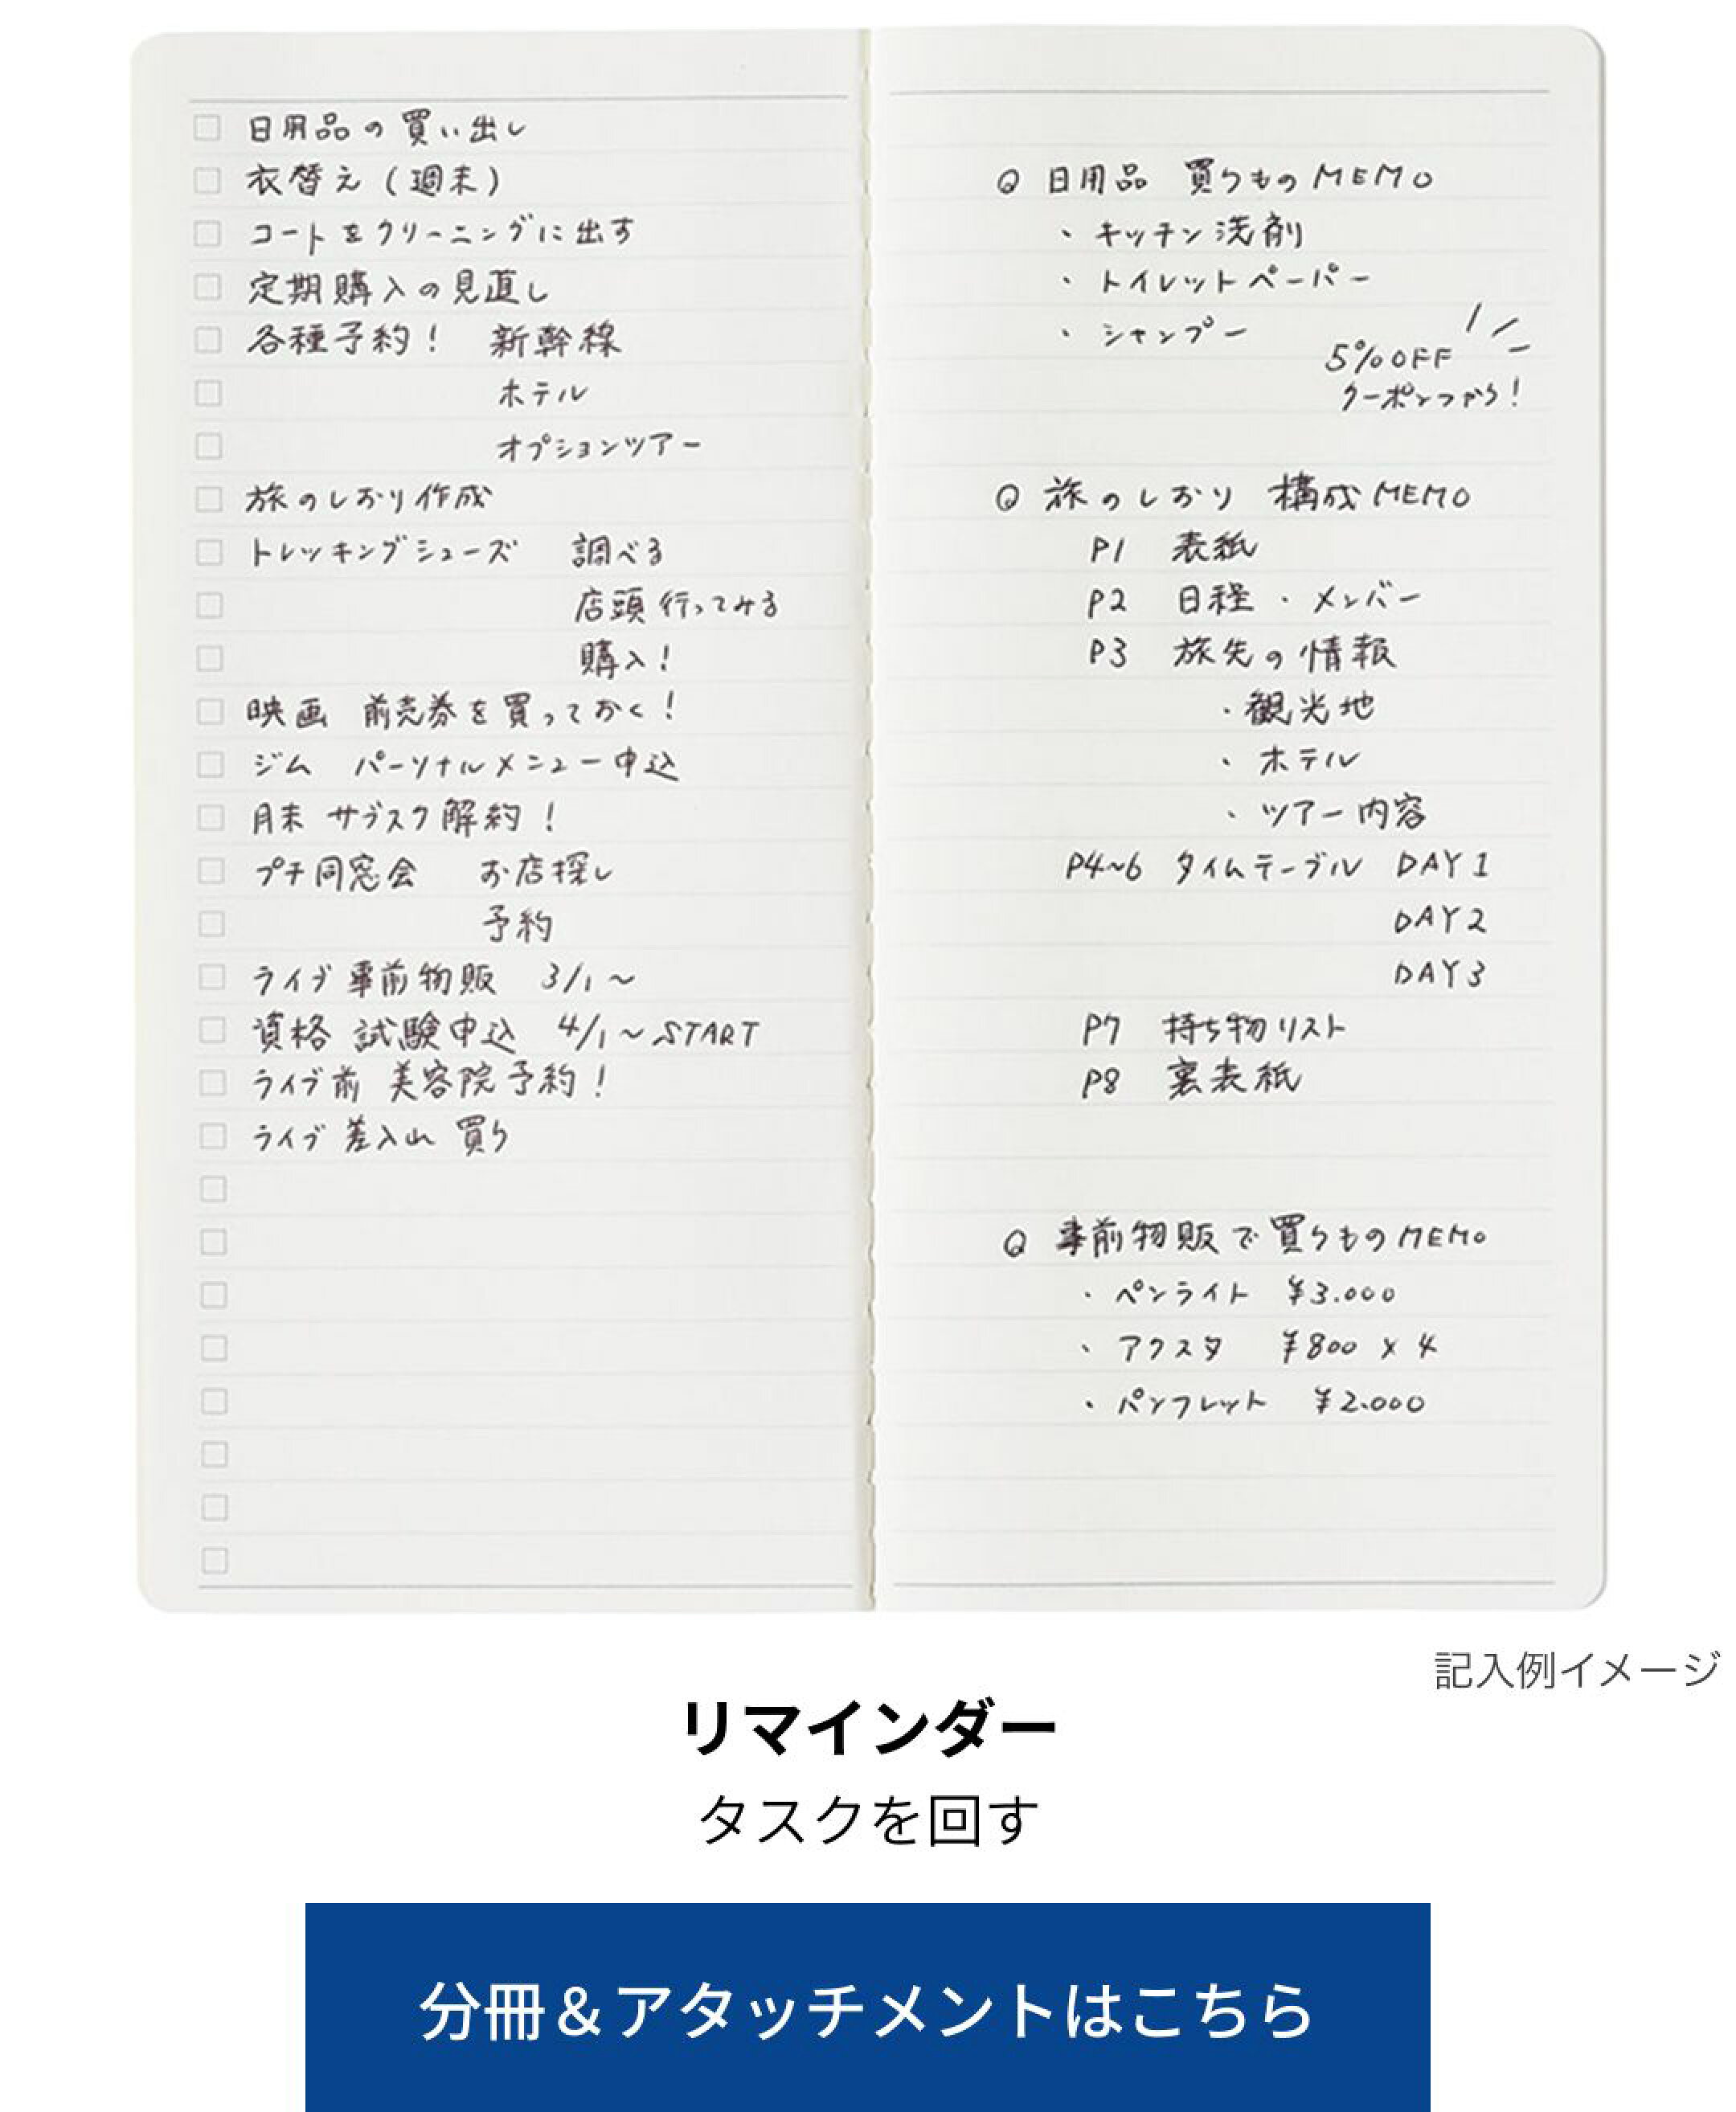 日用品の買い出し
衣替え（週末）
コートをクリーニングに出す
定期購入の見直し
各種予約！ 新幹線
ホテル
オプションツアー
旅のしおり作成
トレッキングシューズ 調べる
店頭行ってみる
購入！
映画 前売券を買っておく！
ジム パーソナルメニュー申込
月末 サブスク解約！
プチ同窓会 お店探し
予約
ライブ事前物販 3/1～
資格 試験申込 4/1～START
ライブ前 美容院予約！
ライブ 差入れ 買う
日用品 買うものMEMO
・キッチン洗剤
・トイレットペーパー
・シャンプー
5%OFF
クーポンつかう！
旅のしおり 構成MEMO
P1 表紙
P2 日程・メンバー
P3 旅先の情報
・観光地
・ホテル
・ツアー内容
P4~6 タイムテーブル DAY1
DAY2
DAY3
P7 持ち物リスト
P8 裏表紙
事前物販で買うものMEMO
・ペンライト ¥3.000
・アクスタ ¥800 × 4
・パンフレット ¥2.000
記入例イメージ
リマインダー
タスクを回す
分冊＆アタッチメントはこちら